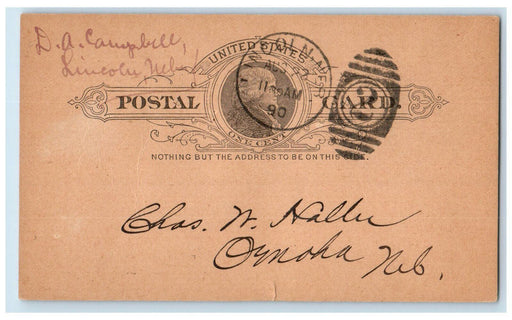 D. A. Campbell,
Lincoln, Neb.
UNITED STATES
LINCOLN, NEBR.
AUG
11 30 AM
90
3
POSTAL CARD.
ONE CENT
NOTHING BUT THE ADDRESS TO BE ON THIS SIDE.
Chas. W. Haller
Omaha
Neb.